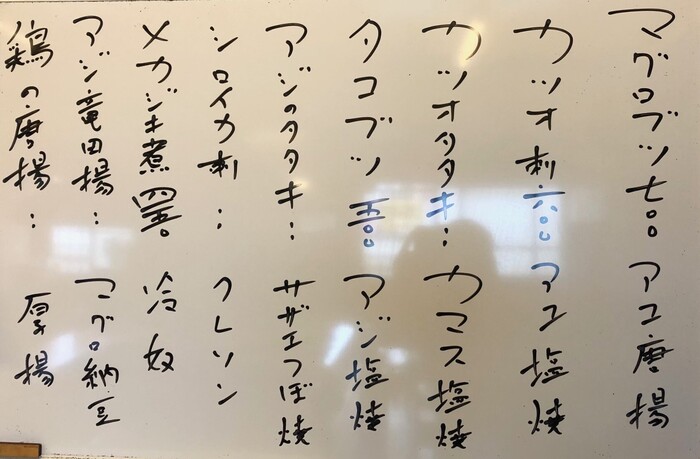 マグロブツ七〇〇
カツオ刺六〇〇
カツオタタキ:
タコブツ五〇〇
アジのタタキ:
シロイカ刺:
メカジキ煮四五〇
アジ竜田揚:
鶏の唐揚:
アユ唐揚
アユ塩焼
カマス塩焼
アジ塩焼
サザエつぼ焼
クレソン
冷奴
マグロ納豆
厚揚